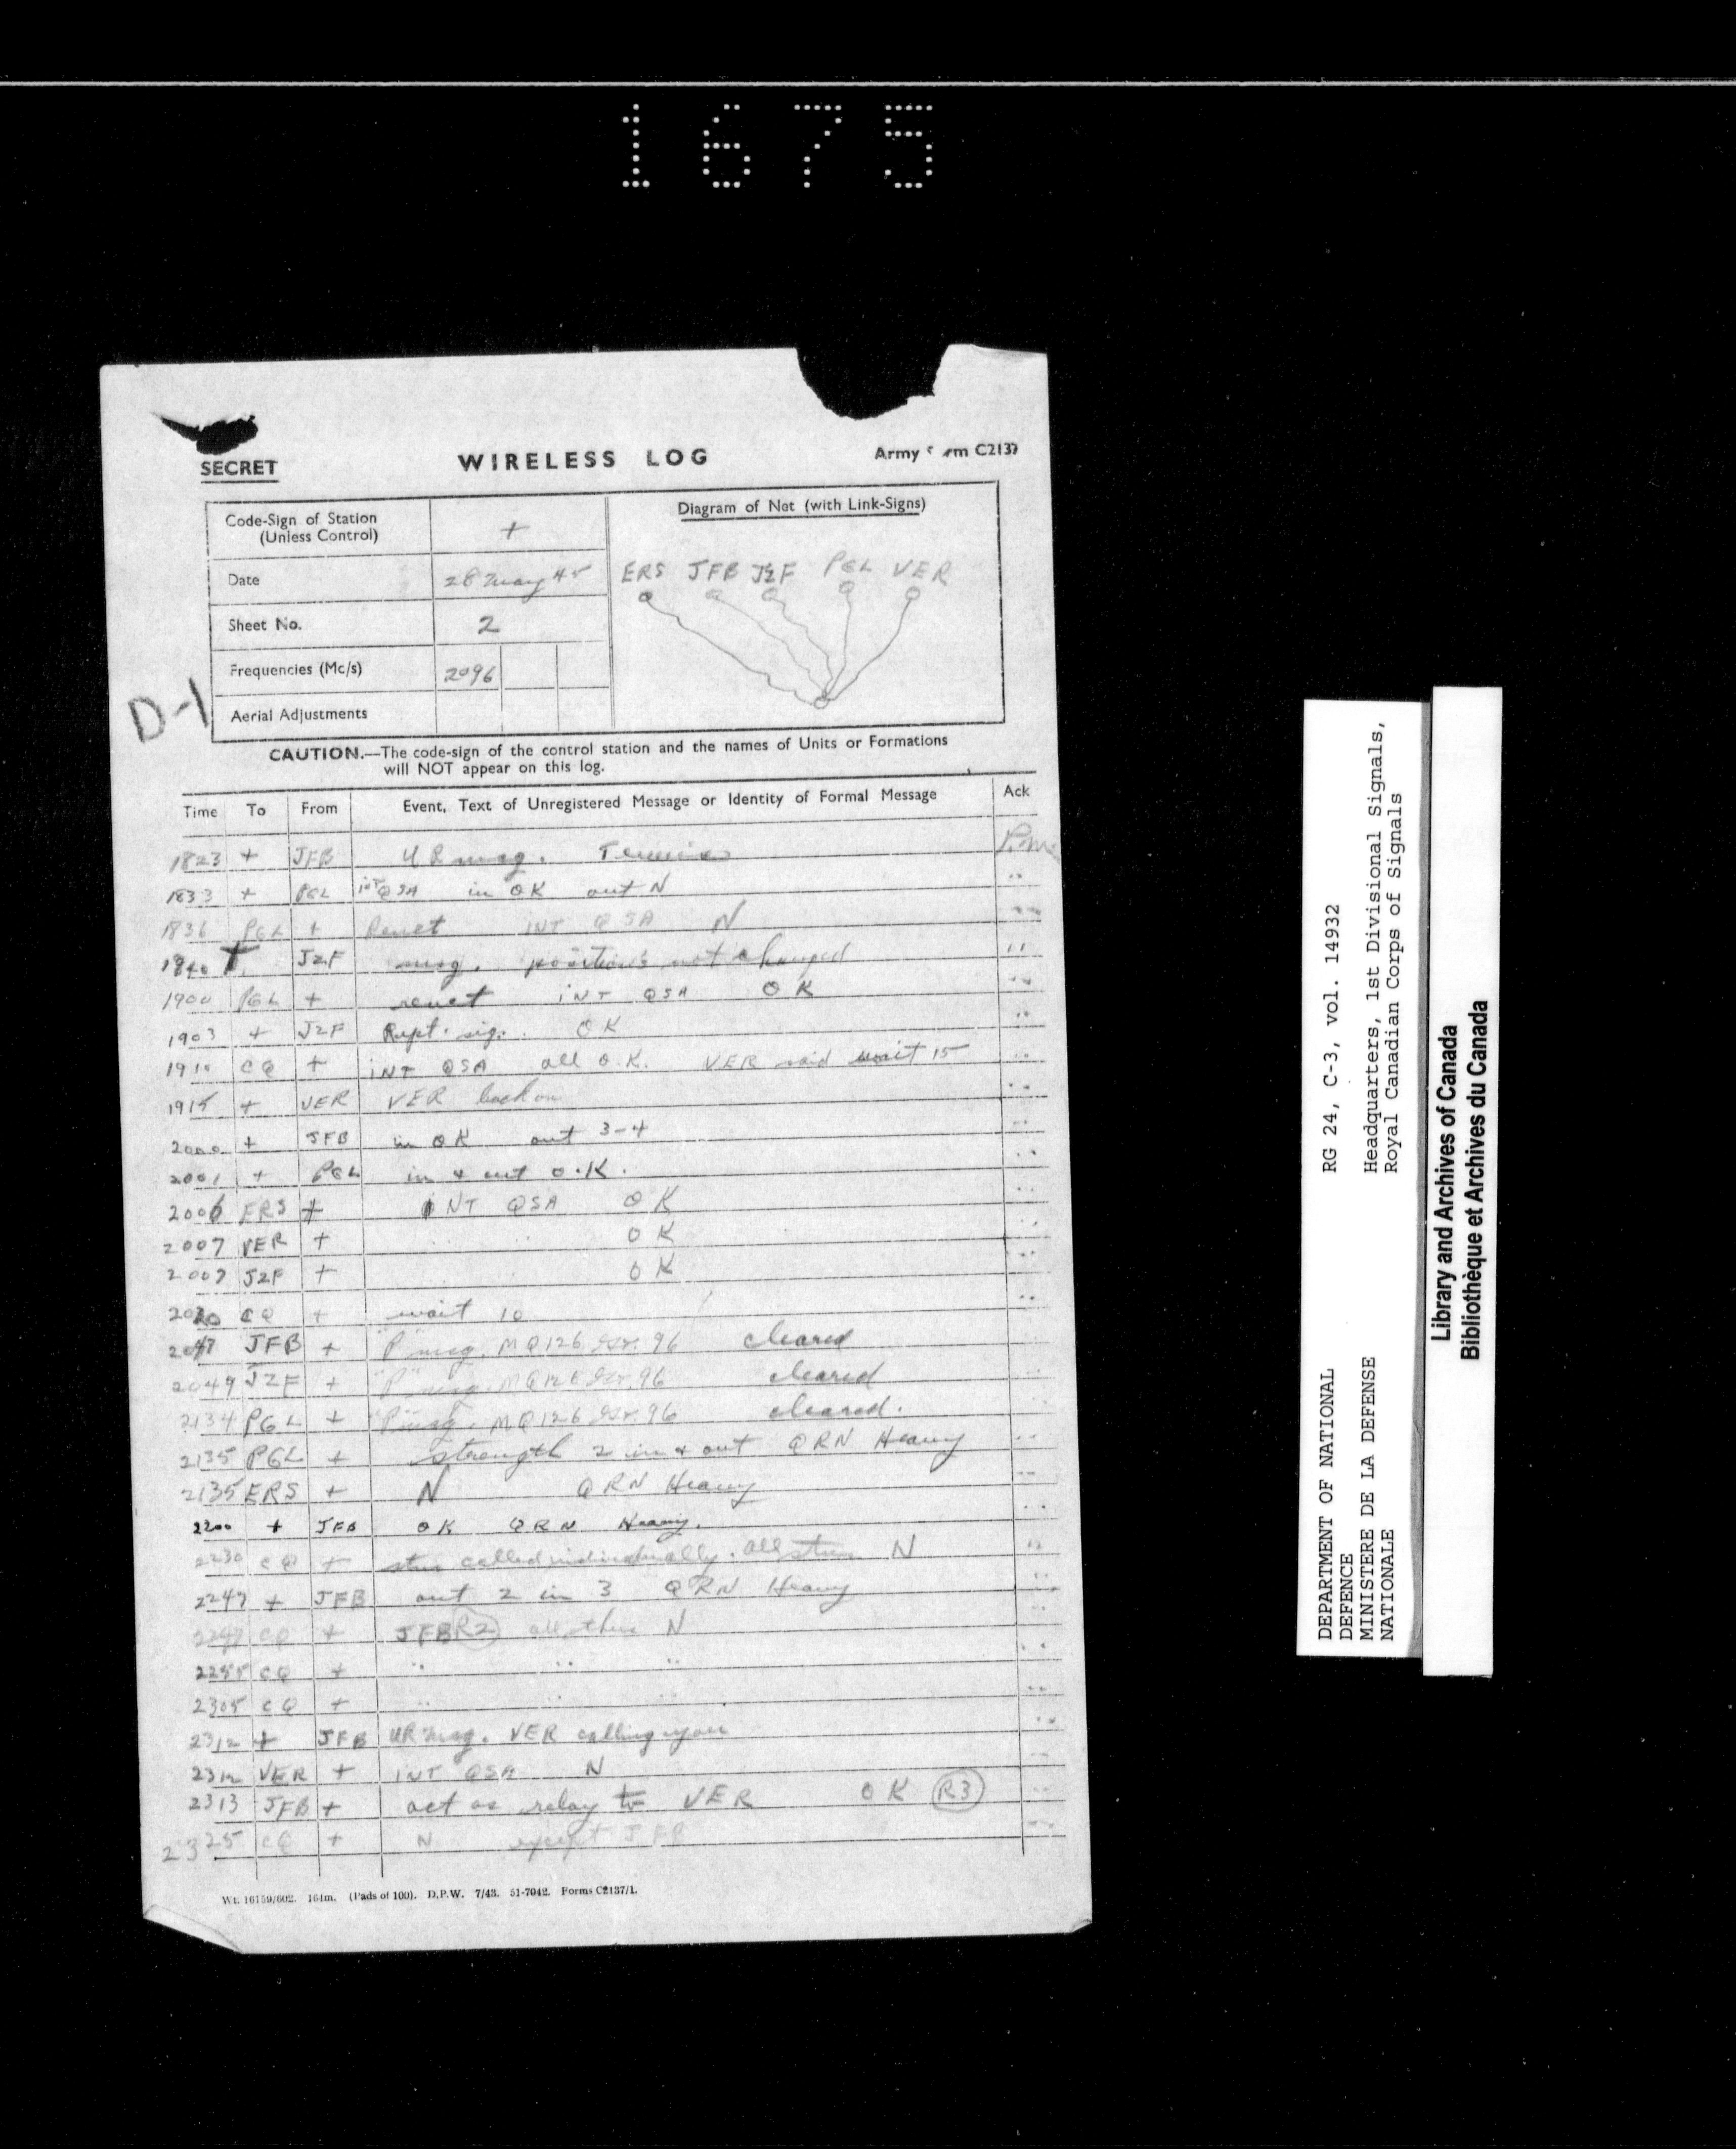 1675
SECRET
WIRELESS LOG
Army Form C2137
Code-Sign of Station
(Unless Control)
+
Date
28 May 45
Sheet No.
2
Frequencies (Mc/s)
2096
Aerial Adjustments
D-1
Diagram of Net (with Link-Signs)
ERS JFB JZF PGL VER
CAUTION.—The code-sign of the control station and the names of Units or Formations
will NOT appear on this log.
Time To From Event, Text of Unregistered Message or Identity of Formal Message Ack
1823 + JFB UR msg.
1833 + PGL INT QSA in OK out N "
1836 PGL + Renet INT QSA N "
1840 + JZF msg. positions not changed "
1900 PGL + renet INT QSA OK "
1903 + JZF Rept. sig. OK "
1910 CQ + INT QSA all O.K. VER said wait 15 "
1915 + VER VER back on "
2000 + JFB in OK out 3-4 "
2001 + PGL in & out O.K. "
2006 ERS + INT QSA OK "
2007 VER + OK "
2007 JZF + OK "
CQ + wait 10 "
2047 JFB + "P" msg. MQ126 Gr. 96 cleared
2049 JZF + "P" msg. MQ126 Gr. 96 cleared
2134 PGL + "P" msg. MQ126 Gr. 96 cleared.
2135 PGL + strength 2 in & out QRN Heavy "
2135 ERS + N QRN Heavy "
2200 + JFB OK QRN Heavy. "
2230 CQ + stns called individually. All stns N "
2247 + JFB out 2 in 3 QRN Heavy "
2247 CQ + JFB R2 all others N "
2255 CQ + " " " "
2305 CQ + " " " "
2312 + JFB UR msg. VER calling you "
2312 VER + INT QSA N "
2313 JFB + act as relay to VER OK R3 "
2325 CQ + N except JFB "
Wt. 16159/602. 164m. (Pads of 100). D.P.W. 7/43. 51-7042. Forms C2137/1.
DEPARTMENT OF NATIONAL RG 24, C-3, vol. 14932
DEFENCE
MINISTERE DE LA DEFENSE Headquarters, 1st Divisional Signals,
NATIONALE Royal Canadian Corps of Signals
Library and Archives of Canada
Bibliothèque et Archives du Canada